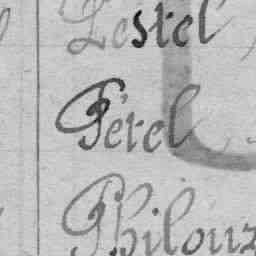 Lestel
Pérel
Philouz